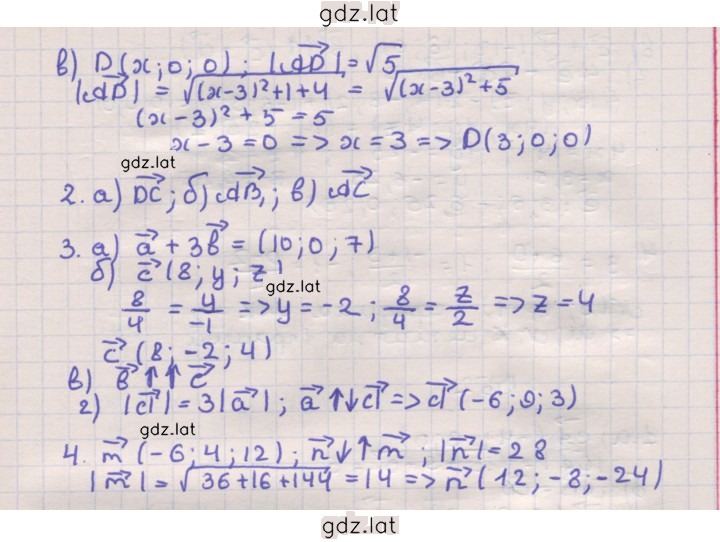 gdz.lat
в) D(x; 0; 0); |AD| = √5
|AD| = √((x-3)²+1+4) = √((x-3)²+5)
(x-3)² + 5 = 5
x - 3 = 0 => x = 3 => D(3; 0; 0)
gdz.lat
2. а) DC; б) AB₁; в) AC
3. а) a + 3b = (10; 0; 7)
б) c (8; y; z)
gdz.lat
8/4 = y/-1 => y = -2; 8/4 = z/2 => z = 4
c (8; -2; 4)
в) b ↑↑ c
г) |d| = 3|a|; a ↑↓ d => d (-6; 9; 3)
gdz.lat
4. m (-6; 4; 12); n ↓↑ m; |n| = 28
|m| = √(36+16+144) = 14 => n (12; -8; -24)
gdz.lat